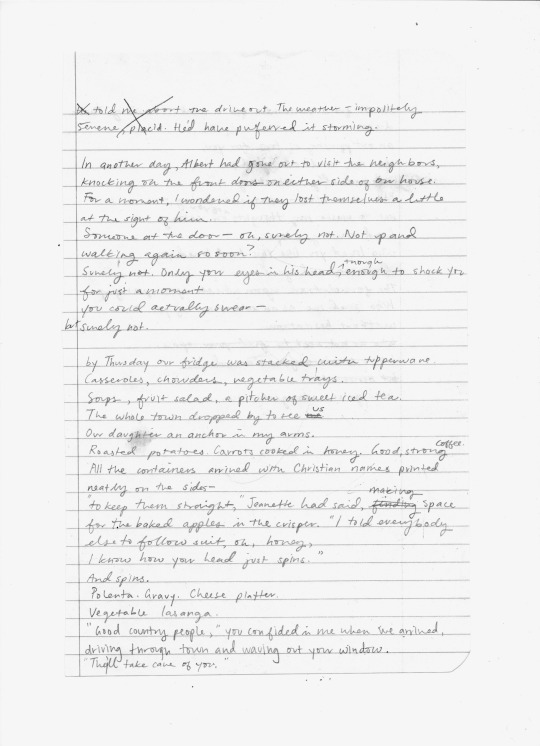 told me about the drive out. The weather – impolitely
serene, placid. He'd have preferred it storming.
In another day, Albert had gone out to visit the neighbors,
knocking on the front doors on either side of our house.
For a moment, I wondered if they lost themselves a little
at the sight of him.
Someone at the door – oh, surely not. Not up and
walking again so soon?
Surely not. Only your eyes in his head, enough to shock you
for just a moment
you could actually swear –
but surely not.
by Thursday our fridge was stacked with tupperware.
Casseroles, chowders, vegetable trays.
Soups, fruit salad, a pitcher of sweet iced tea.
The whole town dropped by to see us
Our daughter an anchor in my arms.
Roasted potatoes. Carrots cooked in honey. Good, strong coffee.
All the containers arrived with Christian names printed
neatly on the sides –
"to keep them straight," Jeanette had said, finding making space
for the baked apples in the crisper. "I told everybody
else to follow suit, oh, honey,
I know how your head just spins."
And spins.
Polenta. Gravy. Cheese platter.
Vegetable lasanga.
"Good country people," you confided in me when we arrived,
driving through town and waving out your window.
"They'll take care of you."